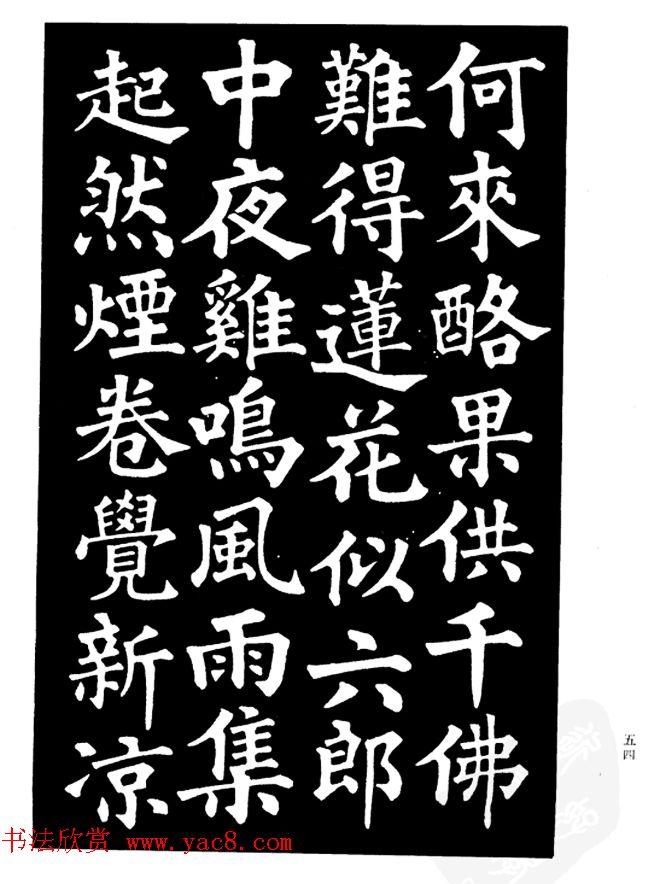 何來酪果供千佛
難得蓮花似六郎
中夜雞鳴風雨集
起然煙卷覺新凉
五四
书法欣赏 www.yac8.com